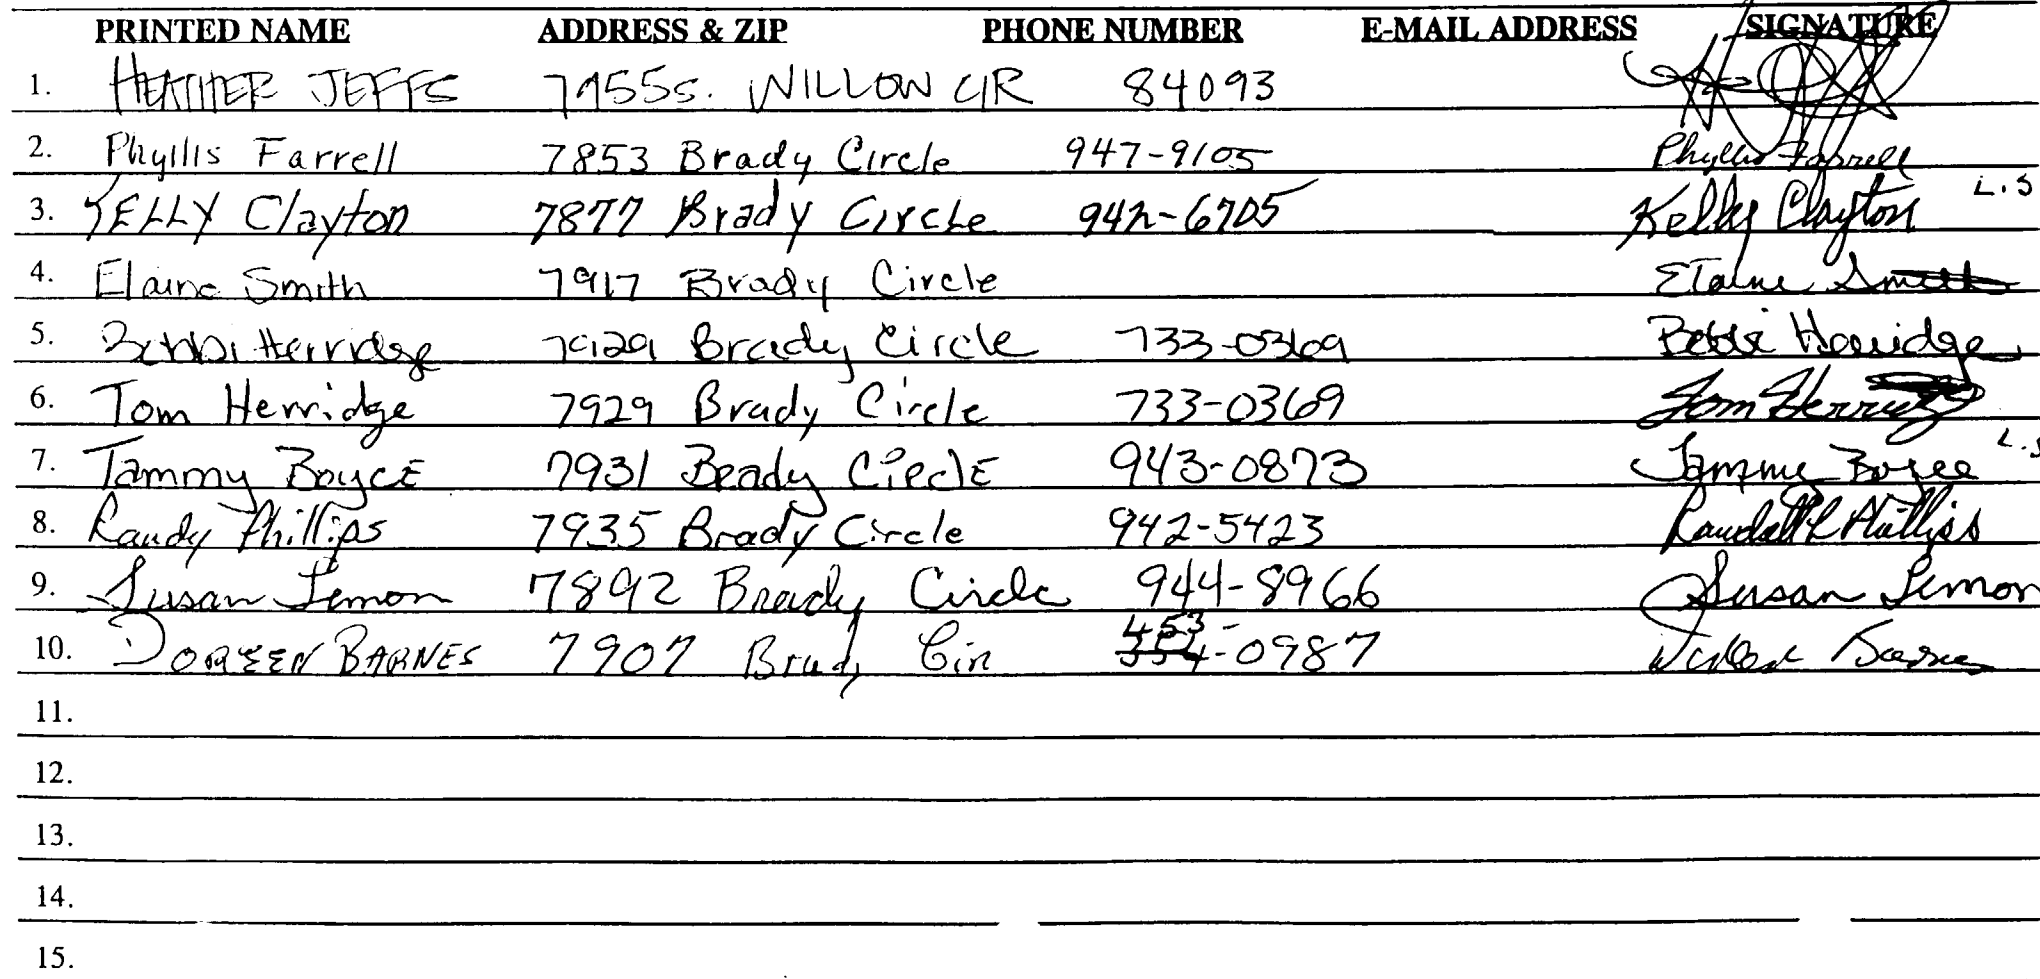 PRINTED NAME ADDRESS & ZIP PHONE NUMBER E-MAIL ADDRESS SIGNATURE
1. HEATHER JEFFS 7955 S. WILLOW CIR 84093
2. Phyllis Farrell 7853 Brady Circle 947-9105 Phyllis Farrell
3. KELLY Clayton 7877 Brady Circle 942-6705 Kelly Clayton L.S
4. Elaine Smith 7917 Brady Circle Elaine Smith
5. Bobbi Herridge 7929 Brady Circle 733-0369 Bobbi Herridge
6. Tom Herridge 7929 Brady Circle 733-0369 Tom Herridge
7. Tammy Boyce 7931 Brady Circle 943-0873 Tammy Boyce L.S
8. Randy Phillips 7935 Brady Circle 942-5423 Randall L Phillips
9. Susan Lemon 7892 Brady Circle 944-8966 Susan Lemon
10. DOREEN BARNES 7907 Brady Cir 453-0987 Doreen Barnes
11.
12.
13.
14.
15.